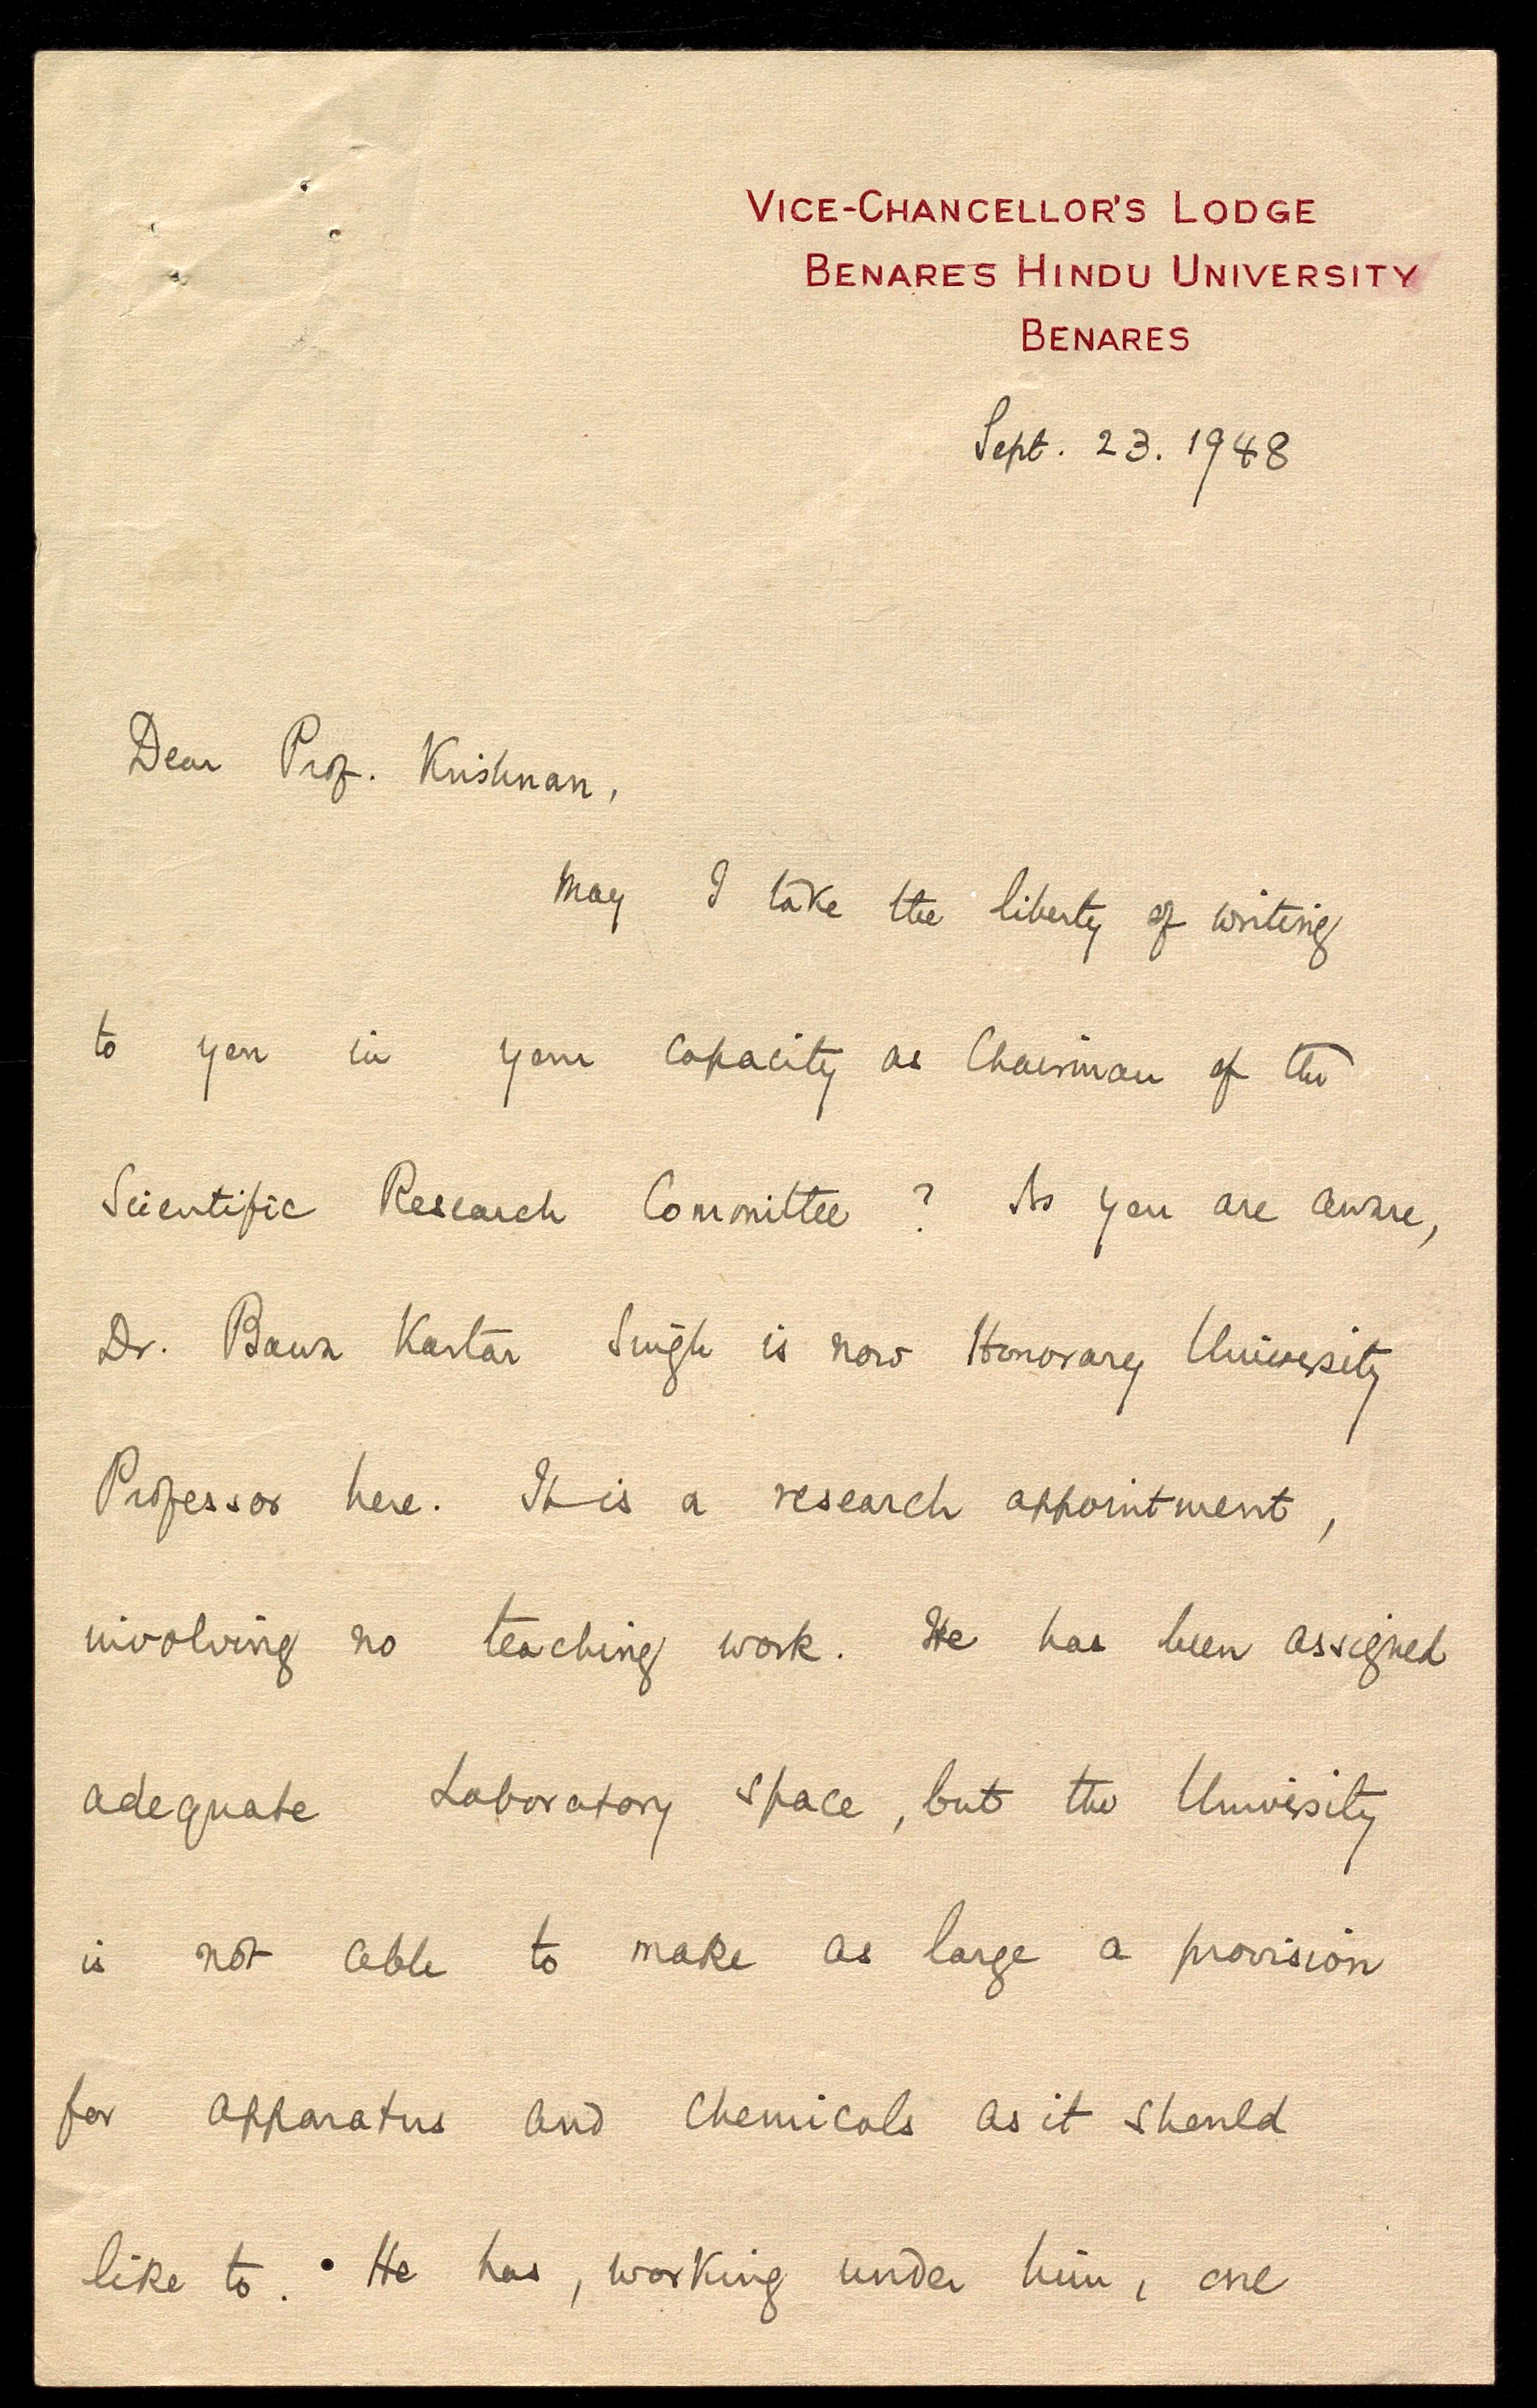 VICE-CHANCELLOR'S LODGE
BENARES HINDU UNIVERSITY
BENARES
Sept. 23. 1948
Dear Prof. Krishnan,
May I take the liberty of writing
to you in your capacity as Chairman of the
Scientific Research Committee ? As you are aware,
Dr. Bawa Kartar Singh is now Honorary University
Professor here. It is a research appointment,
involving no teaching work. He has been assigned
adequate Laboratory space, but the University
is not able to make as large a provision
for apparatus and chemicals as it should
like to. He has, working under him, one